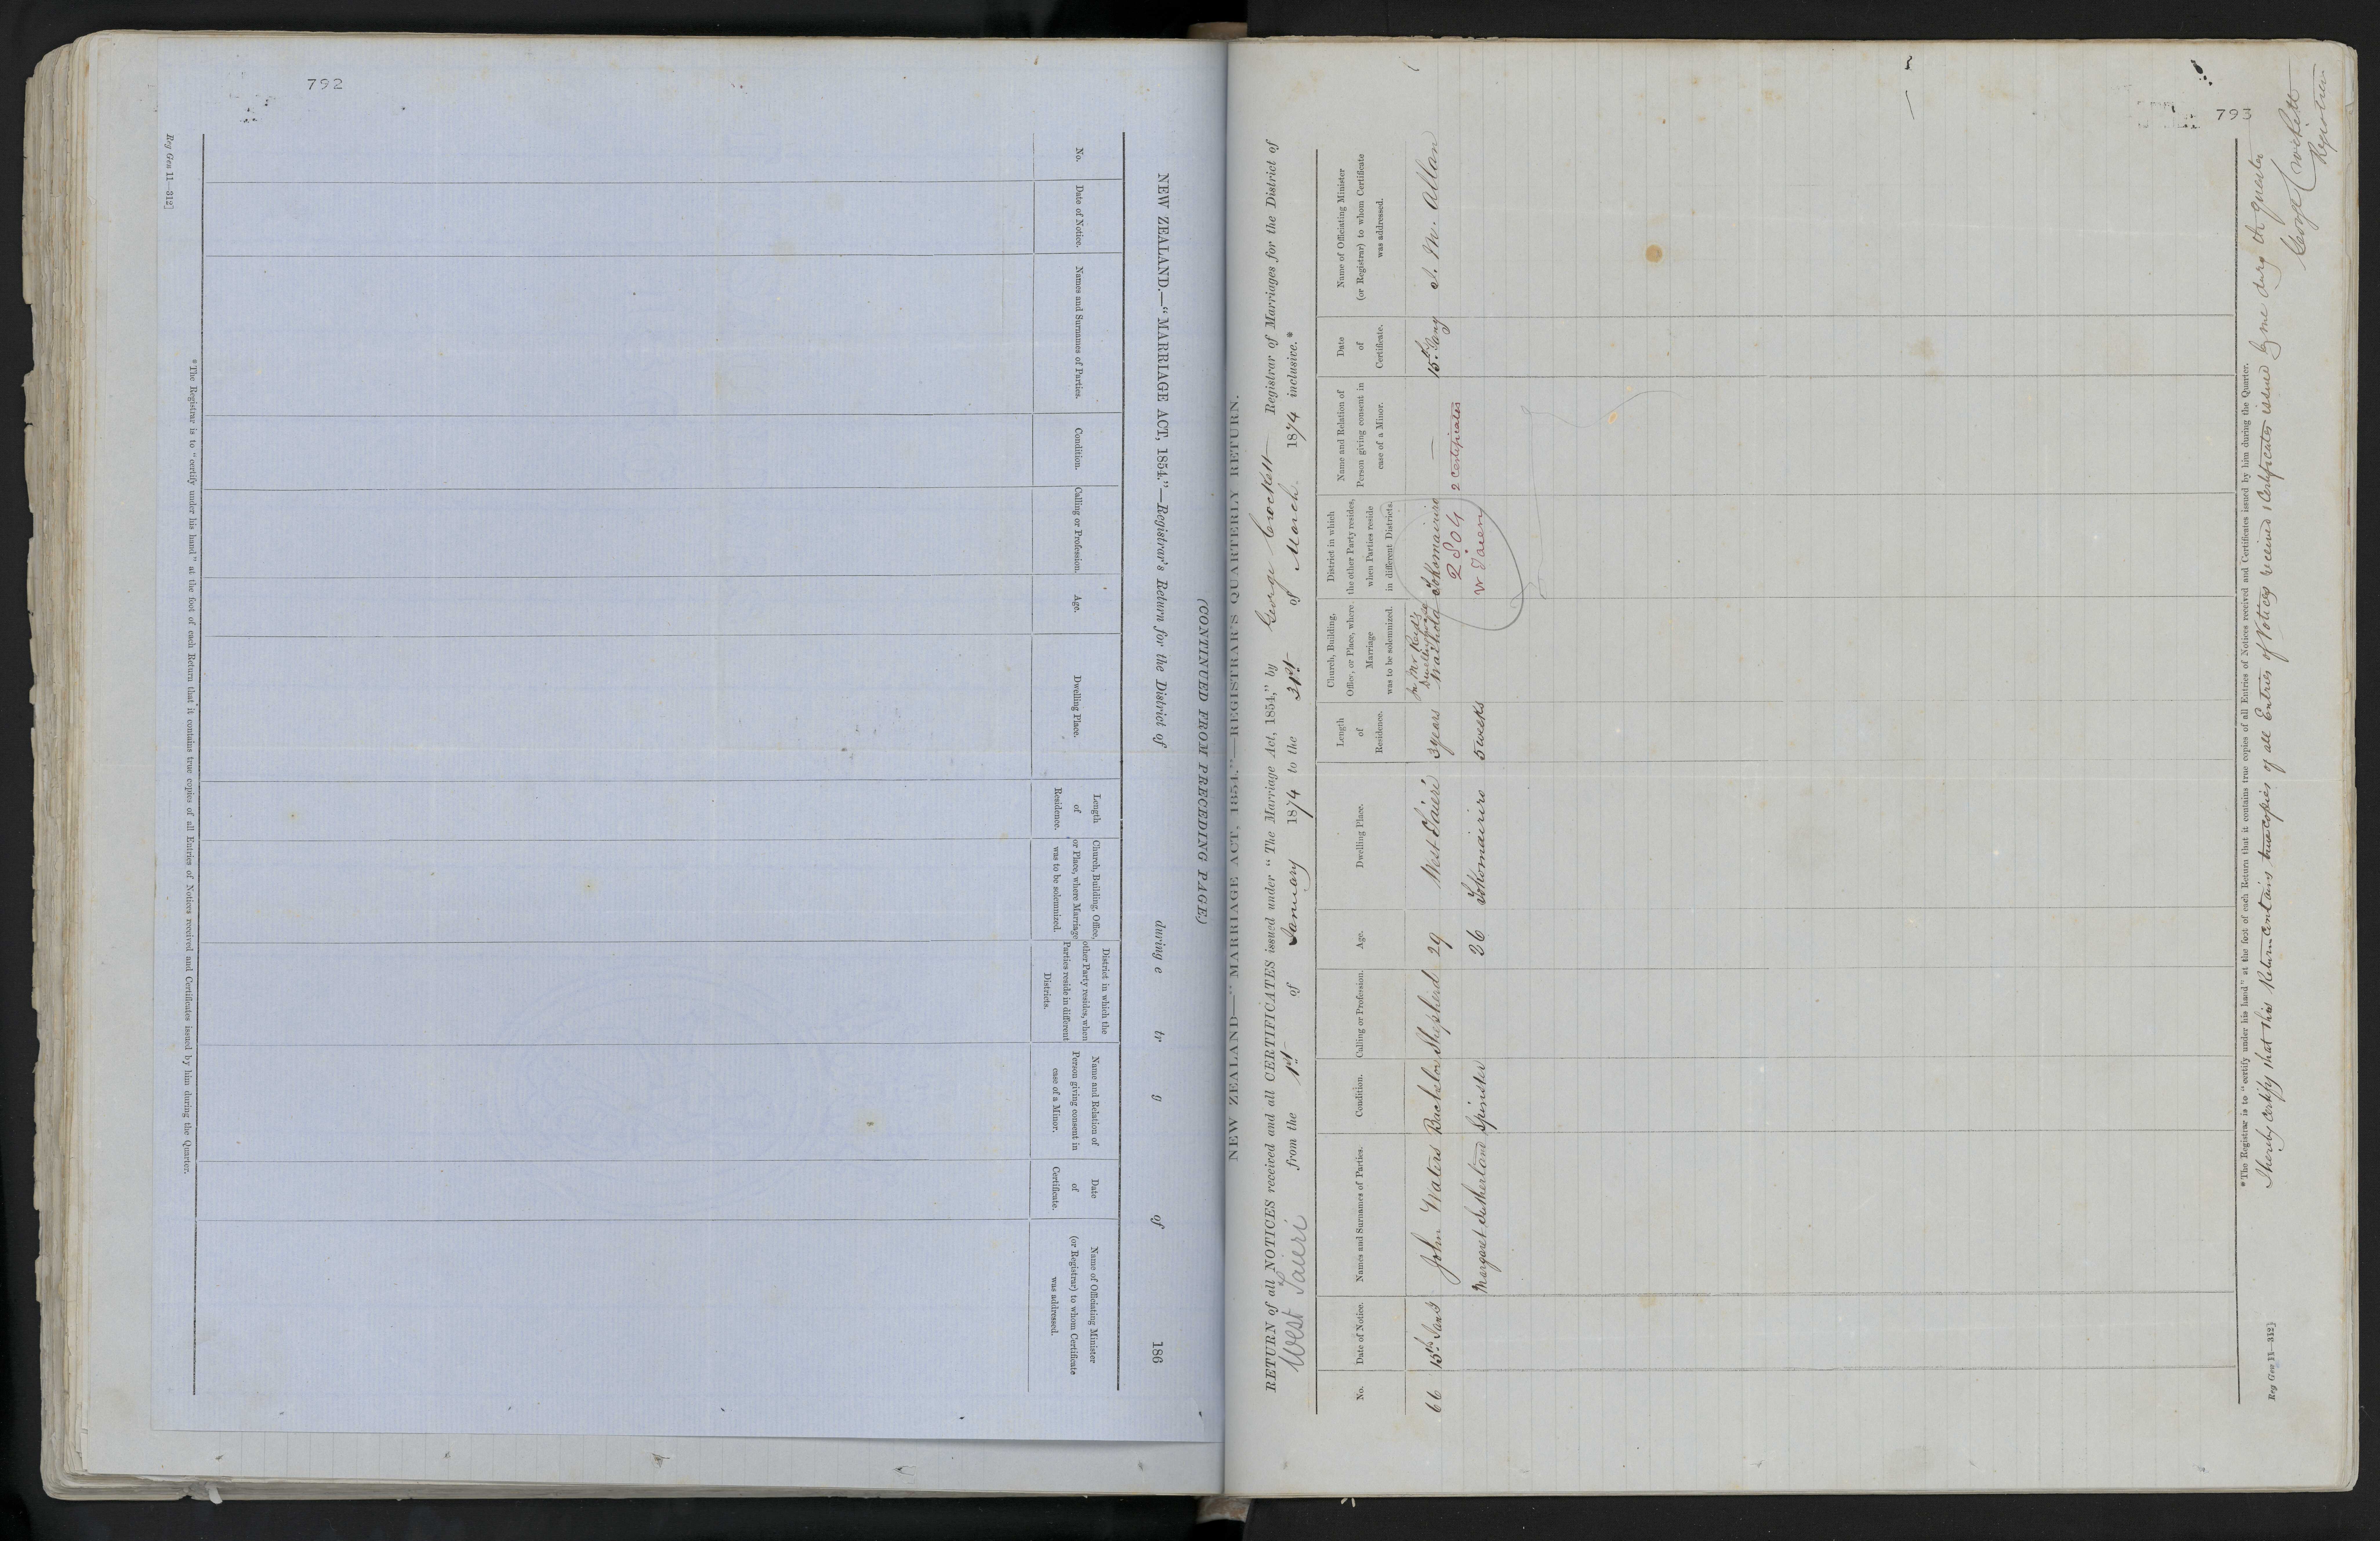 792
(CONTINUED FROM PRECEDING PAGE)
NEW ZEALAND.—"MARRIAGE ACT, 1854."—Registrar's Return for the District of during e tr g of 186
No.
Date of Notice.
Names and Surnames of Parties.
Condition.
Calling or Profession.
Age.
Dwelling Place.
Length
of
Residence.
Church, Building, Office,
or Place, where Marriage
was to be solemnized.
District in which the
other Party resides, when
Parties reside in different
Districts.
Name and Relation of
Person giving consent in
case of a Minor.
Date
of
Certificate.
Name of Officiating Minister
(or Registrar) to whom Certificate
was addressed.
*The Registrar is to "certify under his hand" at the foot of each Return that it contains true copies of all Entries of Notices received and Certificates issued by him during the Quarter.
Reg Gen 11—312]
793
NEW ZEALAND—"MARRIAGE ACT, 1854."—REGISTRAR'S QUARTERLY RETURN.
RETURN of all NOTICES received and all CERTIFICATES issued under "The Marriage Act, 1854," by George Crockett Registrar of Marriages for the District of
West Taieri from the 1st of January 1874 to the 31st of March 1874 inclusive.*
No.
Date of Notice.
Names and Surnames of Parties.
Condition.
Calling or Profession.
Age.
Dwelling Place.
Length
of
Residence.
Church, Building,
Office, or Place, where
Marriage
was to be solemnized.
District in which
the other Party resides,
when Parties reside
in different Districts.
Name and Relation of
Person giving consent in
case of a Minor.
Date
of
Certificate.
Name of Officiating Minister
(or Registrar) to whom Certificate
was addressed.
66 15th John Waters Bachelor Shepherd 29 West Taieri 3 years In Mr Reid's
Dwellinghouse
Waihola Tokomairiro — 15th Jany J. M. Allan
Margaret Sutherland Spinster 26 Tokomairiro 5 weeks
2804
W Taieri
2 Certificates
*The Registrar is to "certify under his hand" at the foot of each Return that it contains true copies of all Entries of Notices received and Certificates issued by him during the Quarter.
I hereby certify that this Return contains true copies of all Entries of Notices received & Certificates issued by me during the quarter
George Crockett
Registrar
Reg Gen 11—312]